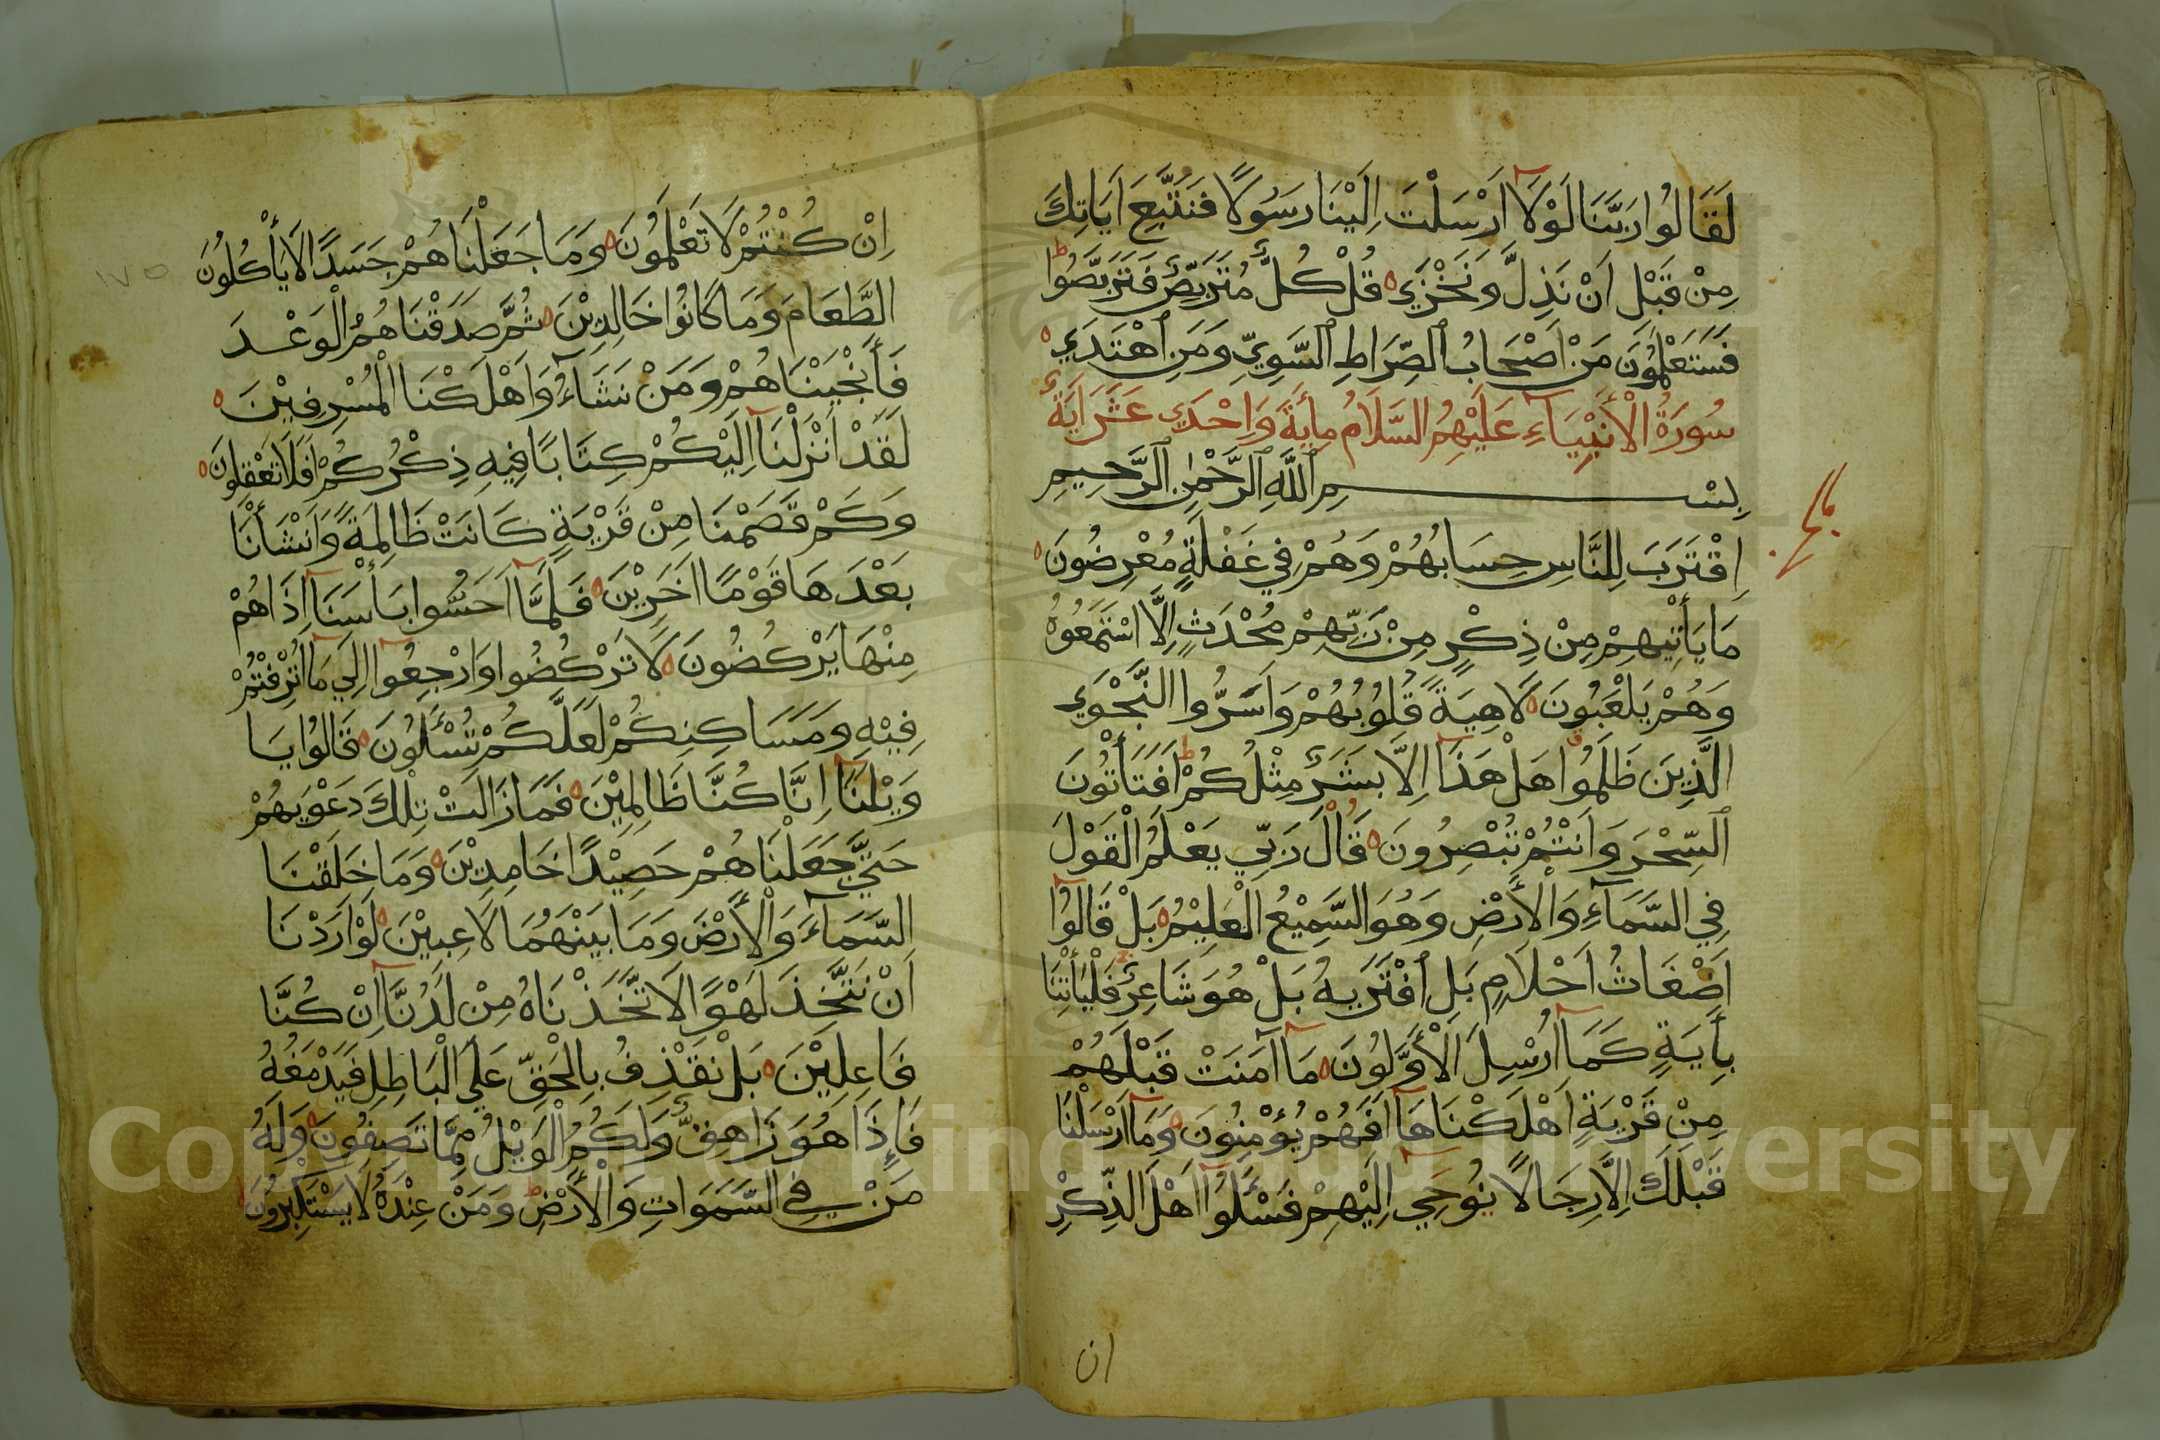 لَقَالُوا رَبَّنَا لَوْلَآ اَرْسَلْتَ اِلَيْنَا رَسُولًا فَنَتَّبِعَ اٰيَاتِكَ
مِنْ قَبْلِ اَنْ نَذِلَّ وَنَخْزَي قُلْ كُلٌّ مُتَرَبِّصٌ فَتَرَبَّصُوا ط
فَسَتَعْلَمُونَ مَنْ اَصْحَابُ ٱلصِّرَاطِ ٱلسَّوِيِّ وَمَنِ ٱهْتَدَي
سُورَةُ الْأَنْبِيَآءِ عَلَيْهِمُ السَّلَامُ مِأَيَةٌ وَاِحْدَي عَشَرَ اٰيَةً
بِسْمِ ٱللَّهِ ٱلرَّحْمٰنِ ٱلرَّحِيمِ
اِقْتَرَبَ لِلنَّاسِ حِسَابُهُمْ وَهُمْ فِي غَفْلَةٍ مُعْرِضُونَ
مَا يَأْتِيهِمْ مِنْ ذِكْرٍ مِنْ رَبِّهِمْ مُحْدَثٍ اِلَّا اسْتَمَعُوهُ
وَهُمْ يَلْعَبُونَ لَاهِيَةً قُلُوبُهُمْ وَاَسَرُّوا النَّجْوَي
الَّذِينَ ظَلَمُوا هَلْ هَذَآ اِلَّا بَشَرٌ مِثْلُكُمْ ط اَفَتَأْتُونَ
ٱلسِّحْرَ وَاَنْتُمْ تُبْصِرُونَ قَالَ رَبِّي يَعْلَمُ الْقَوْلَ
فِي السَّمَآءِ وَالْأَرْضِ وَهُوَ السَّمِيْعُ الْعَلِيْمُ بَلْ قَالُوٓا
اَضْغَاثُ اَحْلَامٍ بَلِ ٱفْتَرَيهُ بَلْ هُوَ شَاعِرٌ فَلْيَأْتِنَا
بِأَيَةٍ كَمَآ اُرْسِلَ الْأَوَّلُونَ مَآ آمَنَتْ قَبْلَهُمْ
مِنْ قَرْيَةٍ اَهْلَكْنَاهَآ اَفَهُمْ يُؤْمِنُونَ وَمَآ اَرْسَلْنَا
قَبْلَكَ اِلَّا رِجَالًا يُوحَي اِلَيْهِمْ فَسْئَلُوآ اَهْلَ الذِّكْرِ
ان
١٧٥
اِنْ كُنْتُمْ لَا تَعْلَمُونَ وَمَا جَعَلْنَاهُمْ جَسَدًا لَا يَأْكُلُونَ
الطَّعَامَ وَمَا كَانُوا خَالِدِيْنَ ثُمَّ صَدَقْنَاهُمُ الْوَعْدَ
فَأَنْجَيْنَاهُمْ وَمَنْ نَشَآءُ وَاَهْلَكْنَا الْمُسْرِفِيْنَ
لَقَدْ اَنْزَلْنَآ اِلَيْكُمْ كِتَابًا فِيهِ ذِكْرُكُمْ اَفَلَا تَعْقِلُونَ
وَكَمْ قَصَمْنَا مِنْ قَرْيَةٍ كَانَتْ ظَالِمَةً وَاَنْشَأْنَا
بَعْدَهَا قَوْمًا اٰخَرِيْنَ فَلَمَّآ اَحَسُّوا بَأْسَنَآ اِذَا هُمْ
مِنْهَا يَرْكُضُونَ لَا تَرْكُضُوا وَارْجِعُوآ اِلَي مَآ اُتْرِفْتُمْ
فِيْهِ وَمَسَاكِنِكُمْ لَعَلَّكُمْ تُسْئَلُونَ قَالُوا يَا
وَيْلَنَآ اِنَّا كُنَّا ظَالِمِيْنَ فَمَا زَالَتْ تِلْكَ دَعْوَيهُمْ
حَتَّي جَعَلْنَاهُمْ حَصِيْدًا خَامِدِيْنَ وَمَا خَلَقْنَا
السَّمَآءَ وَالْأَرْضَ وَمَا بَيْنَهُمَا لَاعِبِيْنَ لَوْ اَرَدْنَا
اَنْ نَتَّخِذَ لَهْوًا لَاتَّخَذْنَاهُ مِنْ لَدُنَّآ اِنْ كُنَّا
فَاعِلِيْنَ بَلْ نَقْذِفُ بِالْحَقِّ عَلَي الْبَاطِلِ فَيَدْمَغُهُ
فَإِذَا هُوَ زَاهِقٌ وَلَكُمُ الْوَيْلُ مِمَّا تَصِفُونَ وَلَهُ
مَنْ فِي السَّمَوَاتِ وَالْأَرْضِ ط وَمَنْ عِنْدَهُ لَا يَسْتَكْبِرُونَ